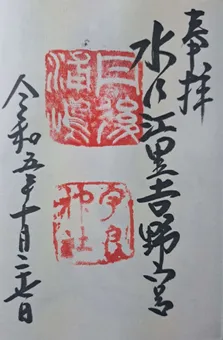 奉拝
水乃江里吉野宮
丹後
浦嶋
宇良
神社
令和五年十月二十七日